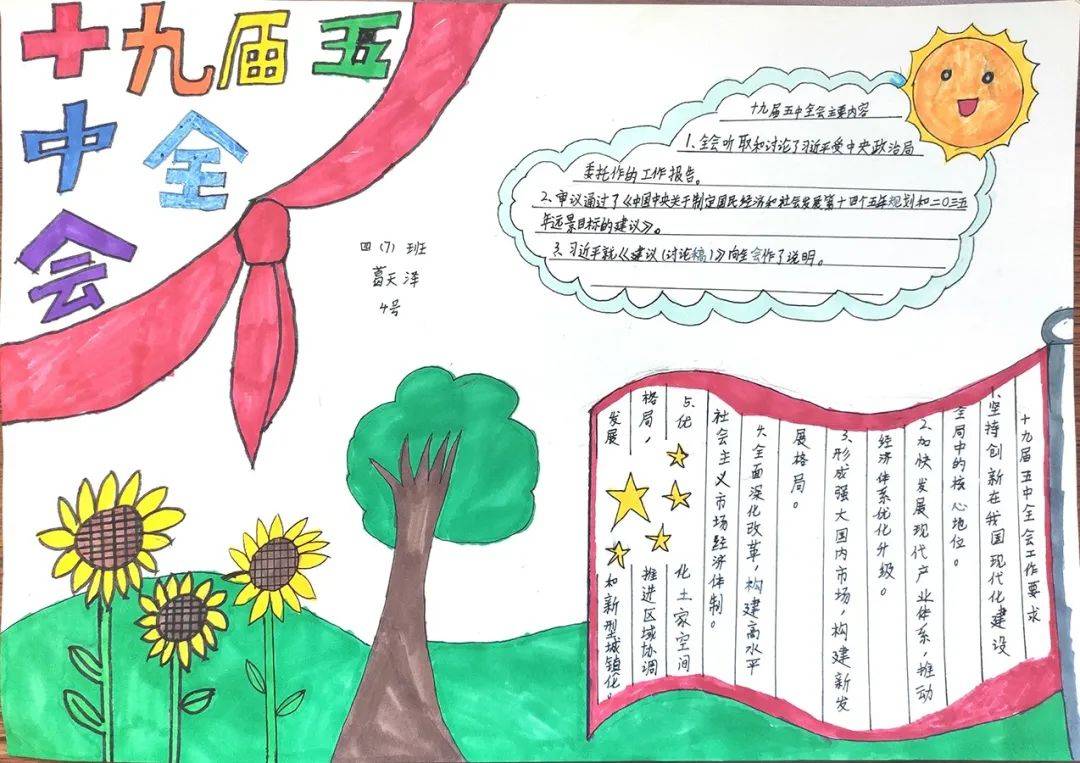 十九届五
中全
会
四（7）班
葛天泽
4号
十九届五中全会主要内容
1、全会听取和讨论了习近平受中央政治局
委托作的工作报告。
2、审议通过了《中国中央关于制定国民经济和社会发展第十四个五年规划和二〇三五
年远景目标的建议》。
3、习近平就《建议(讨论稿)》向全会作了说明。
十九届五中全会工作要求
1、坚持创新在我国现代化建设
全局中的核心地位。
2、加快发展现代产业体系，推动
经济体系优化升级。
3、形成强大国内市场，构建新发
展格局。
4、全面深化改革，构建高水平
社会主义市场经济体制。
5、优化土家空间
格局，推进区域协调
发展和新型城镇化。